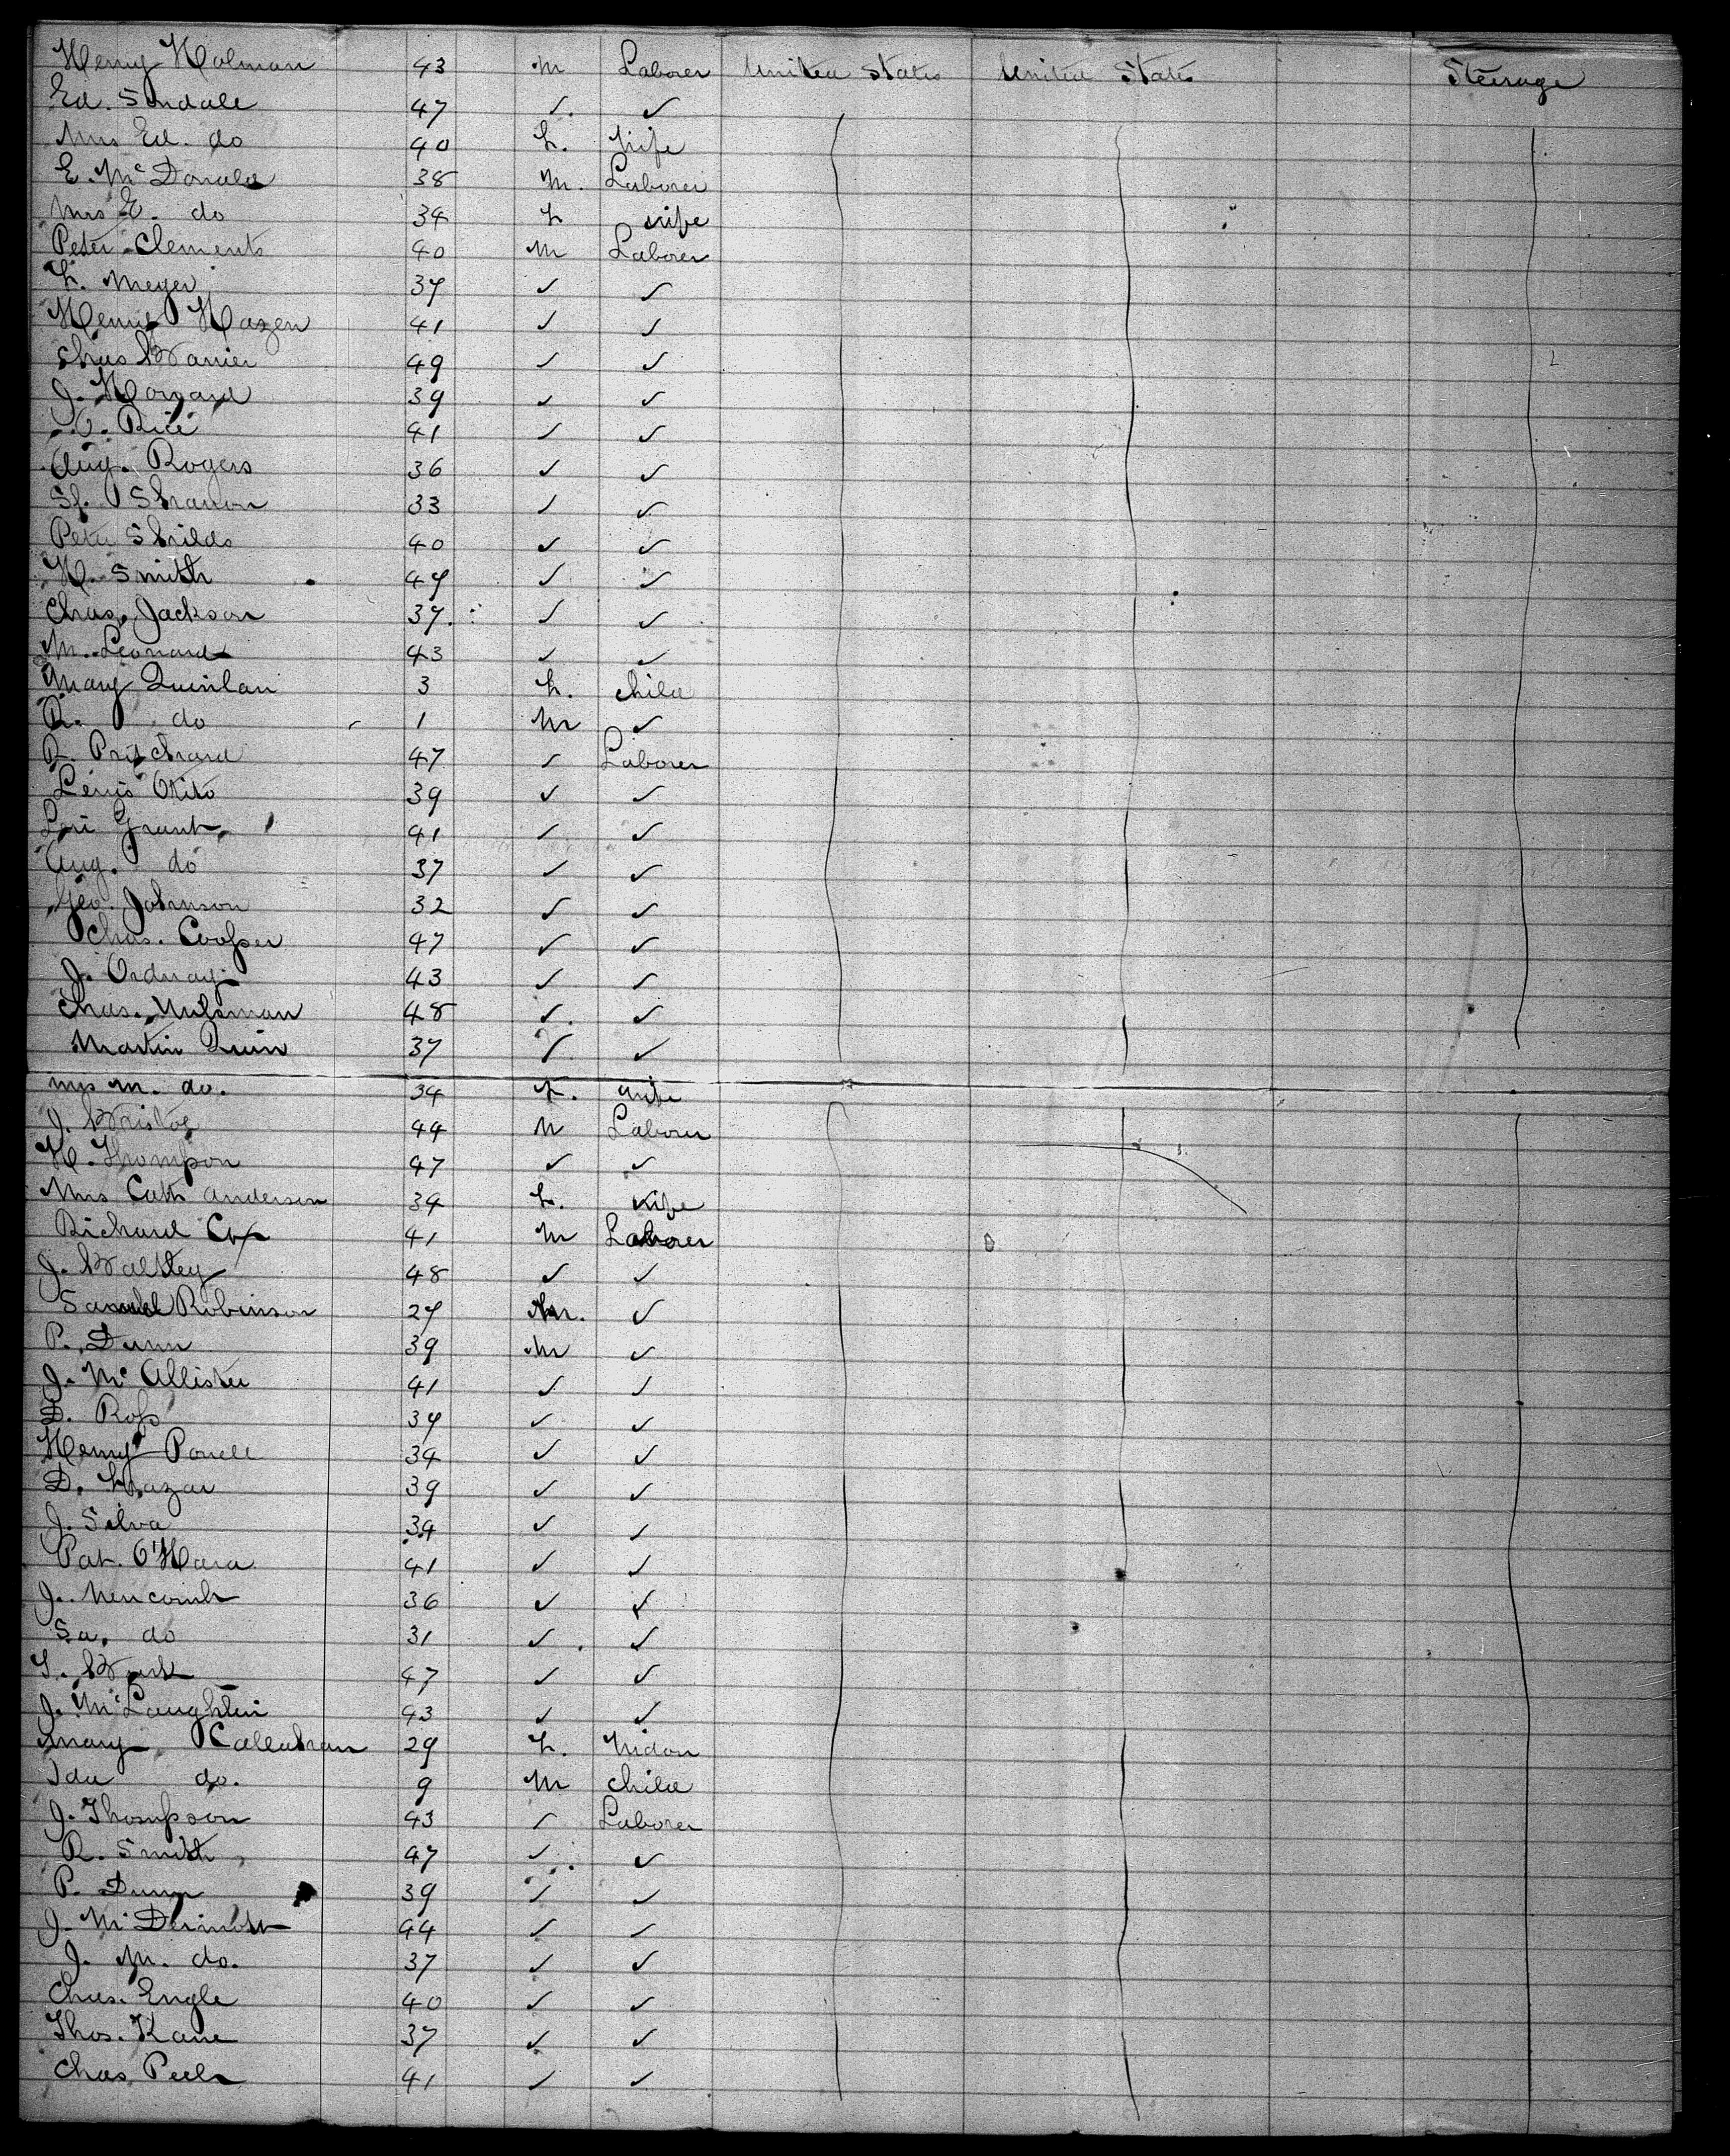 Henry Holman 43 m Laborer United States United States Steerage
Ed. Sindale 47 ✓. ✓
Mrs Ed. do 40 F. Wife
E. McDonald 38 m. Laborer
Mrs E. do 34 F wife
Peter Clements 40 m Laborer
F. Meyer 37 ✓ ✓
Hazen 41 ✓ ✓
Chas Warrier 49 ✓ ✓
J. Morgard 39 ✓ ✓
Rice 41 ✓ ✓
Aug. Rogers 36 ✓ ✓
Shanon 33 ✓ ✓
Peter Shilds 40 ✓ ✓
H. Smith 49 ✓ ✓
Chas. Jackson 37. ✓ ✓
M. Leonard 43 ✓ ✓
Mary Quinlan 3 F. child
R. do 1 m ✓
R. Pritchard 47 ✓ Laborer
Lewis 39 ✓ ✓
Grant 41 ✓ ✓
Aug. do 37 ✓ ✓
Geo. Johnson 32 ✓ ✓
Chas. Cooper 47 ✓ ✓
J. Ordway 43 ✓ ✓
Chas. 48 ✓. ✓
Martin Quin 37 ✓. ✓
Mrs M. do. 34 F. wife
J. 44 m Laborer
H. Thompson 47 ✓ ✓
Mrs Cath Anderson 34 F. wife
Richard Cox 41 m Laborer
J. Waltley 48 ✓ ✓
Samuel Robinson 27 m. ✓
P. Dunn 39 m ✓
J. McAllister 41 ✓ ✓
D. Ross 37 ✓ ✓
Henry Powell 34 ✓ ✓
D. 39 ✓ ✓
J. Silva 34 ✓ ✓
Pat. O'Hara 41 ✓ ✓
J. Newcomb 36 ✓ ✓
Sa. do 31 ✓. ✓
47 ✓ ✓
J. McLaughlin 43 ✓ ✓
Mary Callahan 29 F. Widow
Ida do. 9 m child
J. Thompson 43 ✓ Laborer
R. Smith 47 ✓ ✓
P. Dunn 39 ✓ ✓
J. McDermott 44 ✓ ✓
J. M. do. 37 ✓ ✓
Chas. Engle 40 ✓ ✓
Thos. Kane 37 ✓ ✓
Chas Peel 41 ✓ ✓